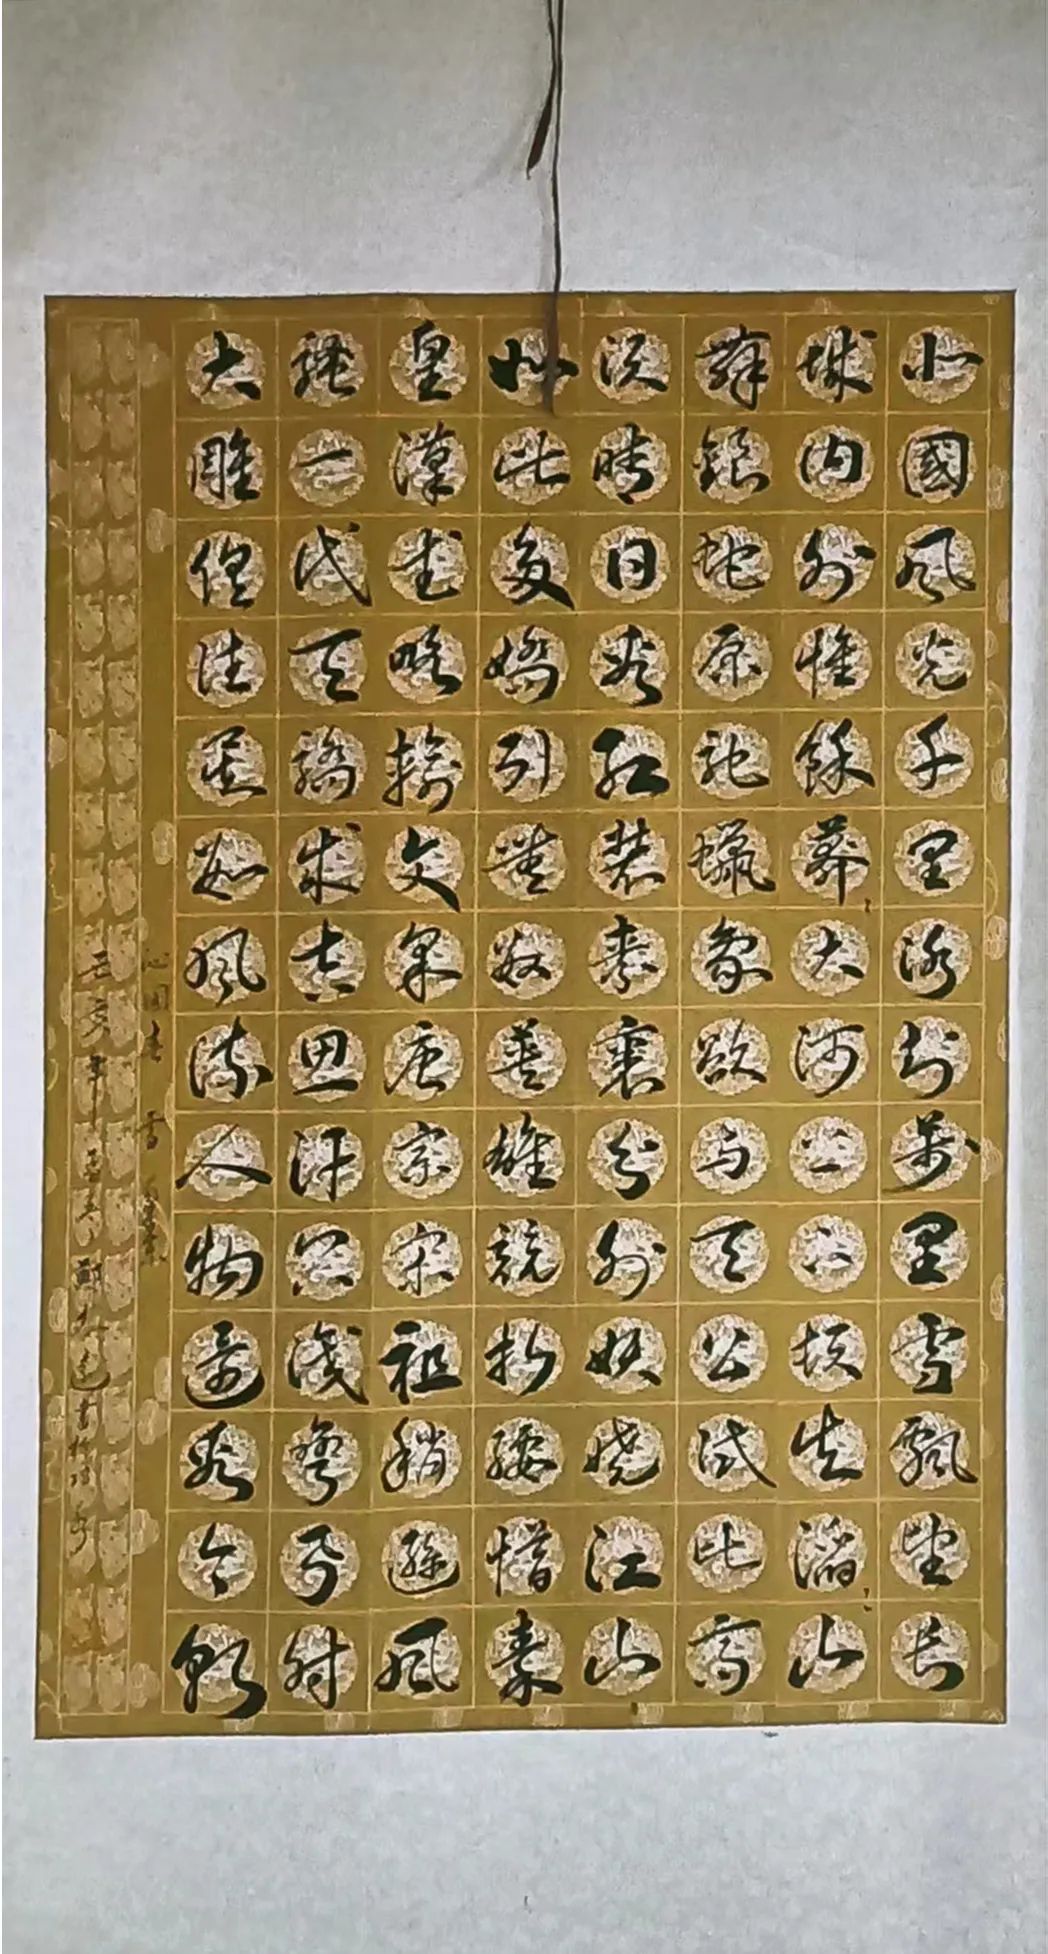 北國風光千里冰封萬里雪飄望長
城内外惟餘莽〻大河上下頓失滔〻山
舞銀蛇原馳蠟象欲与天公試比高
須晴日看紅裝素裹分外妖嬈江山
如此多嬌引無數英雄競折腰惜秦
皇漢武略輸文采唐宗宋祖稍遜風
騷一代天驕成吉思汗只識彎弓射
大雕俱往矣數風流人物還看今朝
沁园春 雪
己亥年孟冬